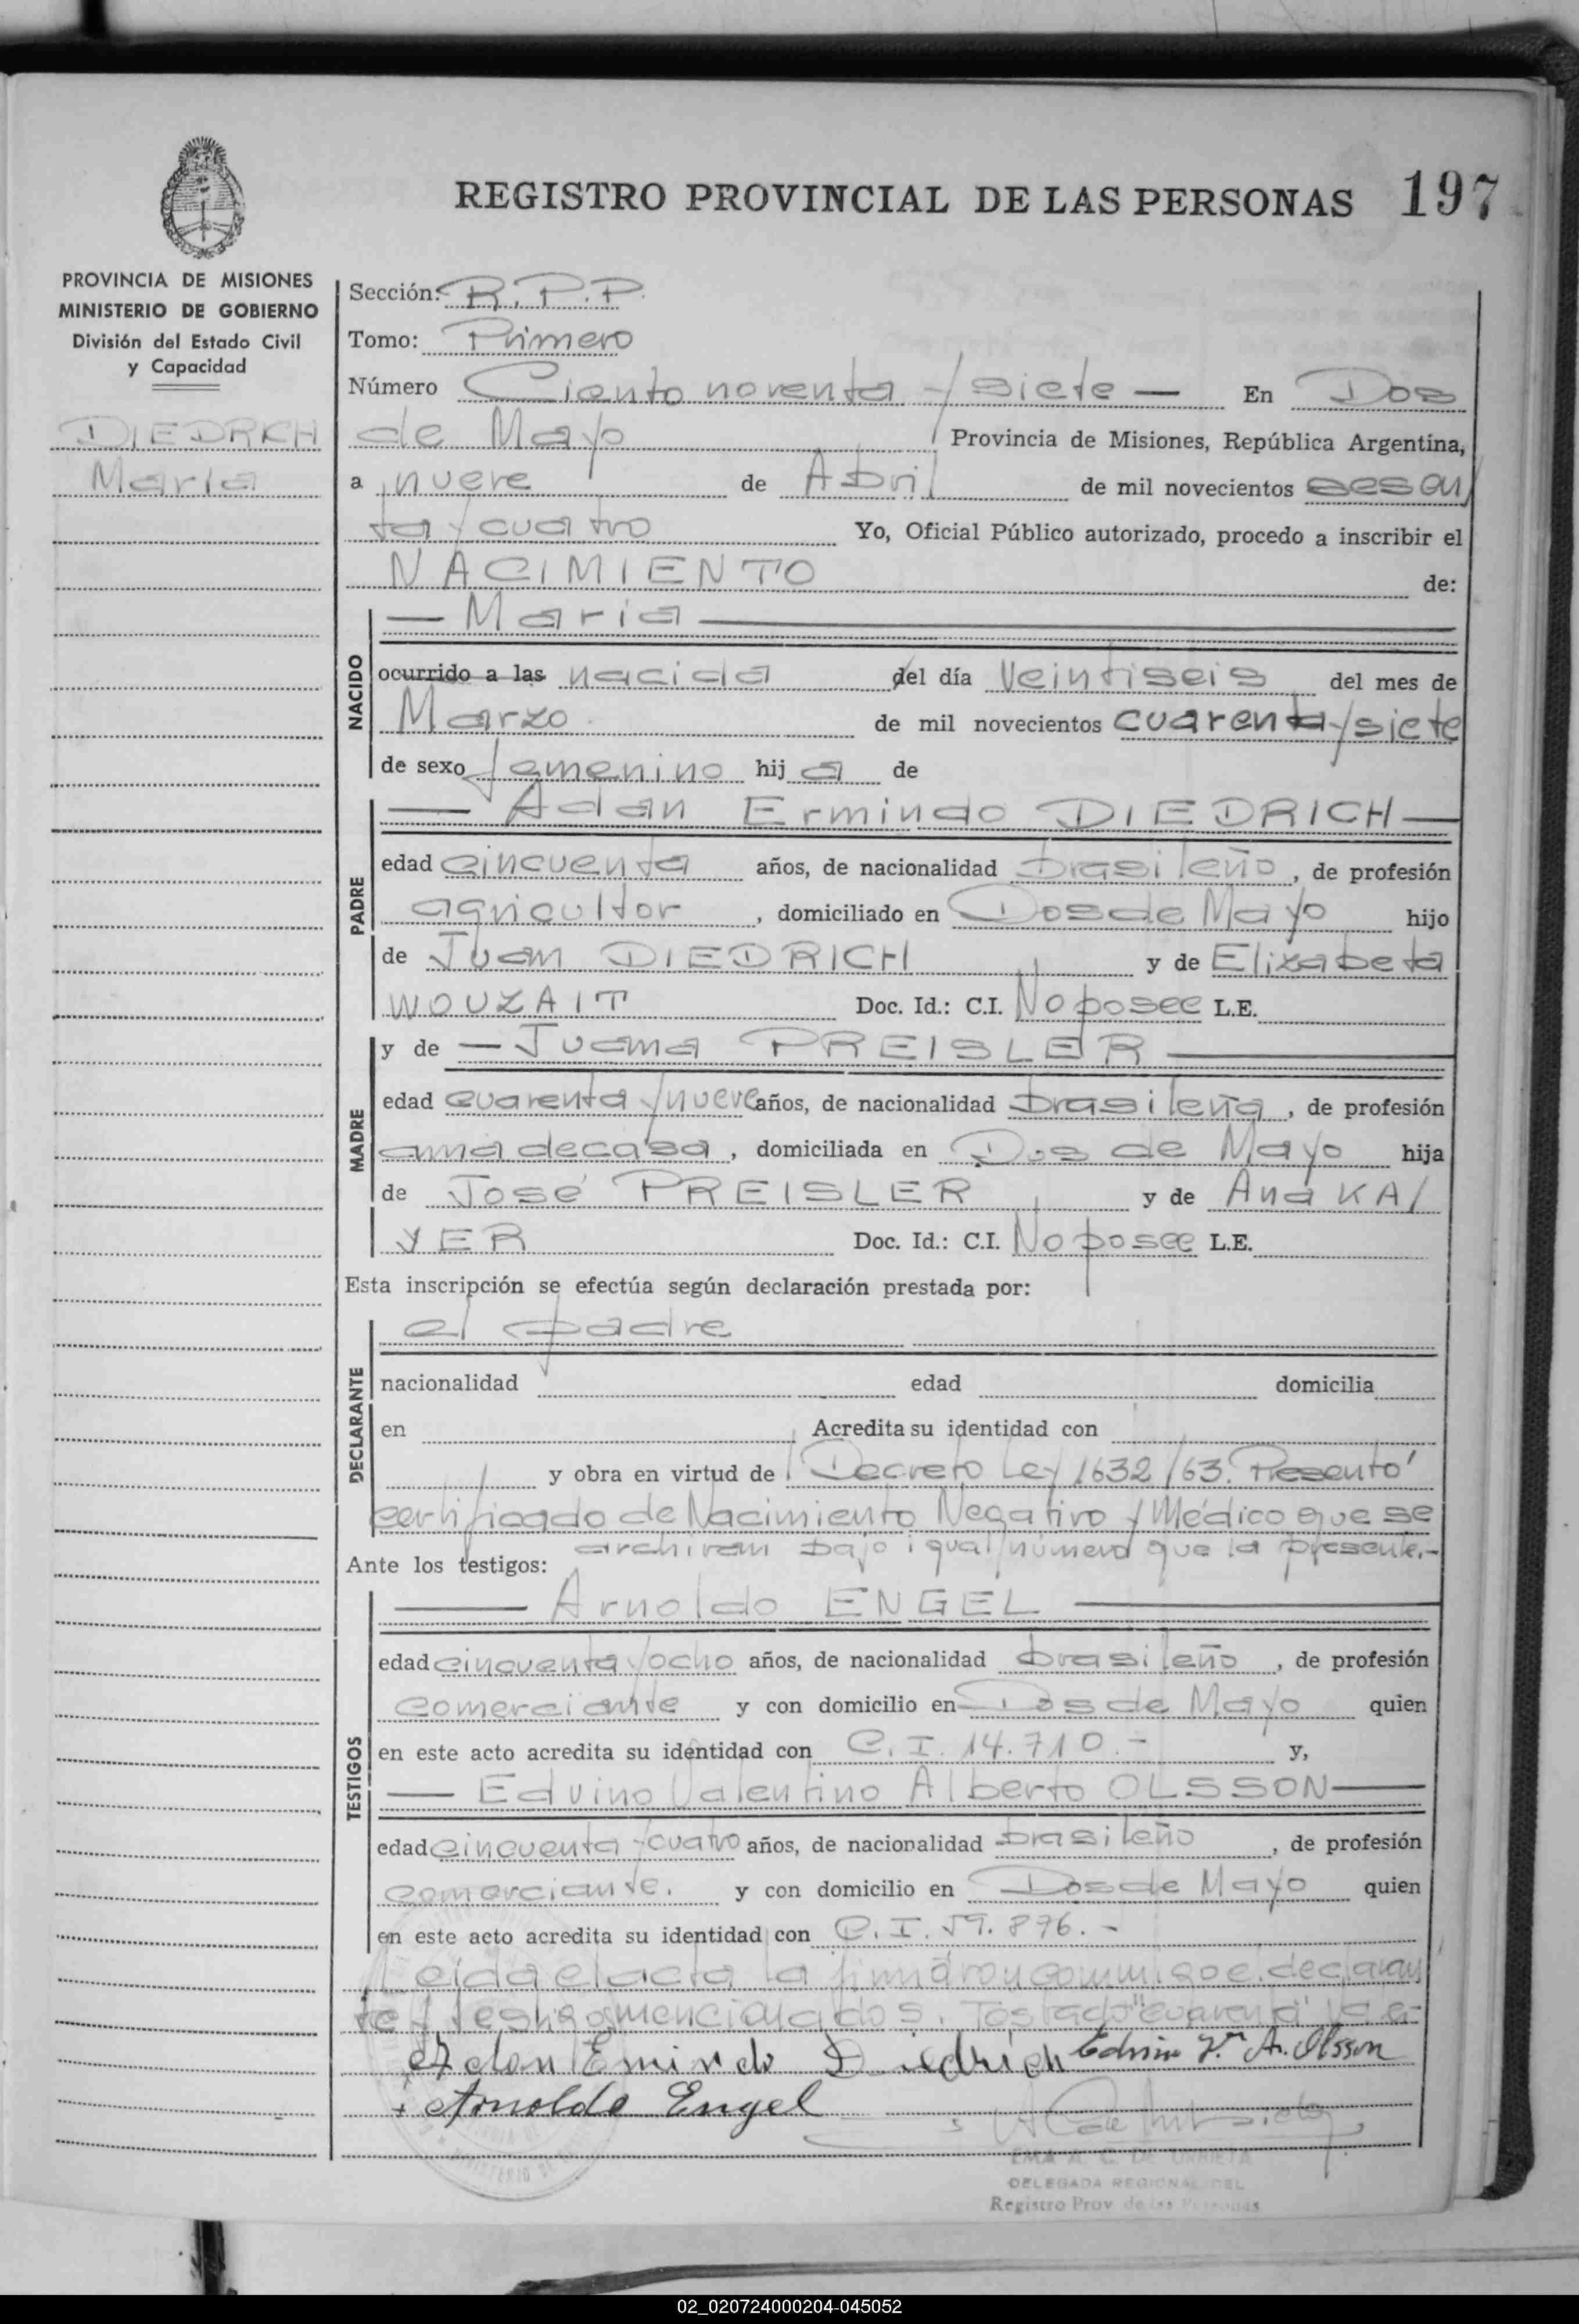 REGISTRO PROVINCIAL DE LAS PERSONAS 197
PROVINCIA DE MISIONES
MINISTERIO DE GOBIERNO
División del Estado Civil
y Capacidad
DIEDRICH
María
Sección: R.P.P.
Tomo: Primero
Número Ciento noventa y siete — En Dos
de Mayo Provincia de Misiones, República Argentina,
a nueve de Abril de mil novecientos sesen/
ta y cuatro Yo, Oficial Público autorizado, procedo a inscribir el
NACIMIENTO de:
— María —
NACIDO
ocurrido a las nacida del día Veintiseis del mes de
Marzo. de mil novecientos cuarenta y siete
de sexo femenino hij a de
PADRE
— Adan Ermindo DIEDRICH —
edad cincuenta años, de nacionalidad brasileño, de profesión
agricultor, domiciliado en Dos de Mayo hijo
de Juan DIEDRICH y de Elizabeta
WOUZAIT Doc. Id.: C.I. No posee L.E.
MADRE
y de — Juana PREISLER —
edad cuarenta y nueve años, de nacionalidad brasileña, de profesión
ama de casa, domiciliada en Dos de Mayo hija
de José PREISLER y de Ana KA/
YER Doc. Id.: C.I. No posee L.E.
Esta inscripción se efectúa según declaración prestada por:
DECLARANTE
el padre
nacionalidad edad domicilia
en Acredita su identidad con
y obra en virtud de Decreto Ley 1632/63. Presentó
certificado de Nacimiento Negativo y Médico que se
archivan bajo igual número que la presente.-
Ante los testigos:
TESTIGOS
— Arnoldo ENGEL —
edad cincuenta y ocho años, de nacionalidad brasileño, de profesión
comerciante y con domicilio en Dos de Mayo quien
en este acto acredita su identidad con C.I. 14.710.- y,
— Edvino Valentino Alberto OLSSON —
edad cincuenta y cuatro años, de nacionalidad brasileño, de profesión
comerciante. y con domicilio en Dos de Mayo quien
en este acto acredita su identidad con C.I. 59.876.-
Leida el acta la firmáron conmigo e. declaran
te y testigos mencionados. Tostado "cuarenta"
Adan Emindo Diedrich Edvino V. A. Olsson
+ Arnoldo Engel
EMA A. C. DE URRIETA
DELEGADA REGIONAL DEL
Registro Prov de las Personas
02_020724000204-045052